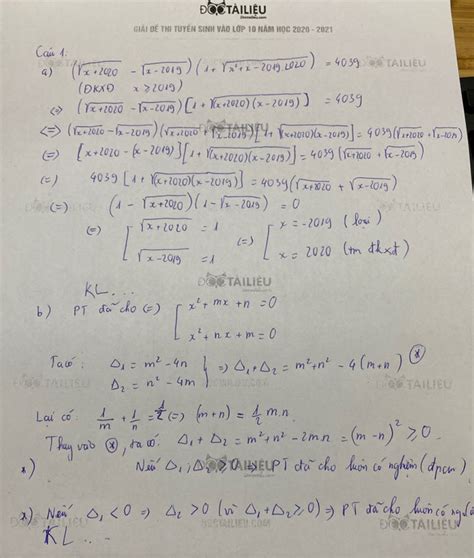 ĐỌCTÀILIỆU
GIẢI ĐỀ THI TUYỂN SINH VÀO LỚP 10 NĂM HỌC 2020 - 2021
Câu 1:
a) (√x+2020 - √x-2019)(1 + √x²+x-2019.2020) = 4039
(ĐKXĐ x ≥ 2019)
(=) (√x+2020 - √x-2019)[1 + √(x+2020)(x-2019)] = 4039
<=> (√x+2020 - √x-2019)(√x+2020 + √x-2019)[1+√(x+2020)(x-2019)] = 4039(√x+2020 + √x-2019)
(=) [x+2020 - (x-2019)][1 + √(x+2020)(x-2019)] = 4039(√x+2020 + √x-2019)
(=) 4039[1 + √(x+2020)(x-2019)] = 4039(√x+2020 + √x-2019)
(=) (1 - √x+2020)(1 - √x-2019) = 0
(=) [ √x+2020 = 1 (=) [ x = -2019 (loại)
√x-2019 = 1 x = 2020 (tm đkxđ)
KL...
b) PT đã cho (=) [ x² + mx + n = 0
x² + nx + m = 0
Ta có: Δ₁ = m² - 4n } => Δ₁+Δ₂ = m²+n² - 4(m+n) (*)
Δ₂ = n² - 4m
Lại có 1/m + 1/n = 1/2 (=) (m+n) = 1/2 m.n
Thay vào (*), ta có Δ₁ + Δ₂ = m² + n² - 2mn = (m-n)² ≥ 0.
*) Nếu Δ₁; Δ₂ ≥ 0 => PT đã cho luôn có nghiệm (đpcm)
*) Nếu Δ₁ < 0 => Δ₂ > 0 (vì Δ₁+Δ₂ ≥ 0) => PT đã cho luôn có
KL...